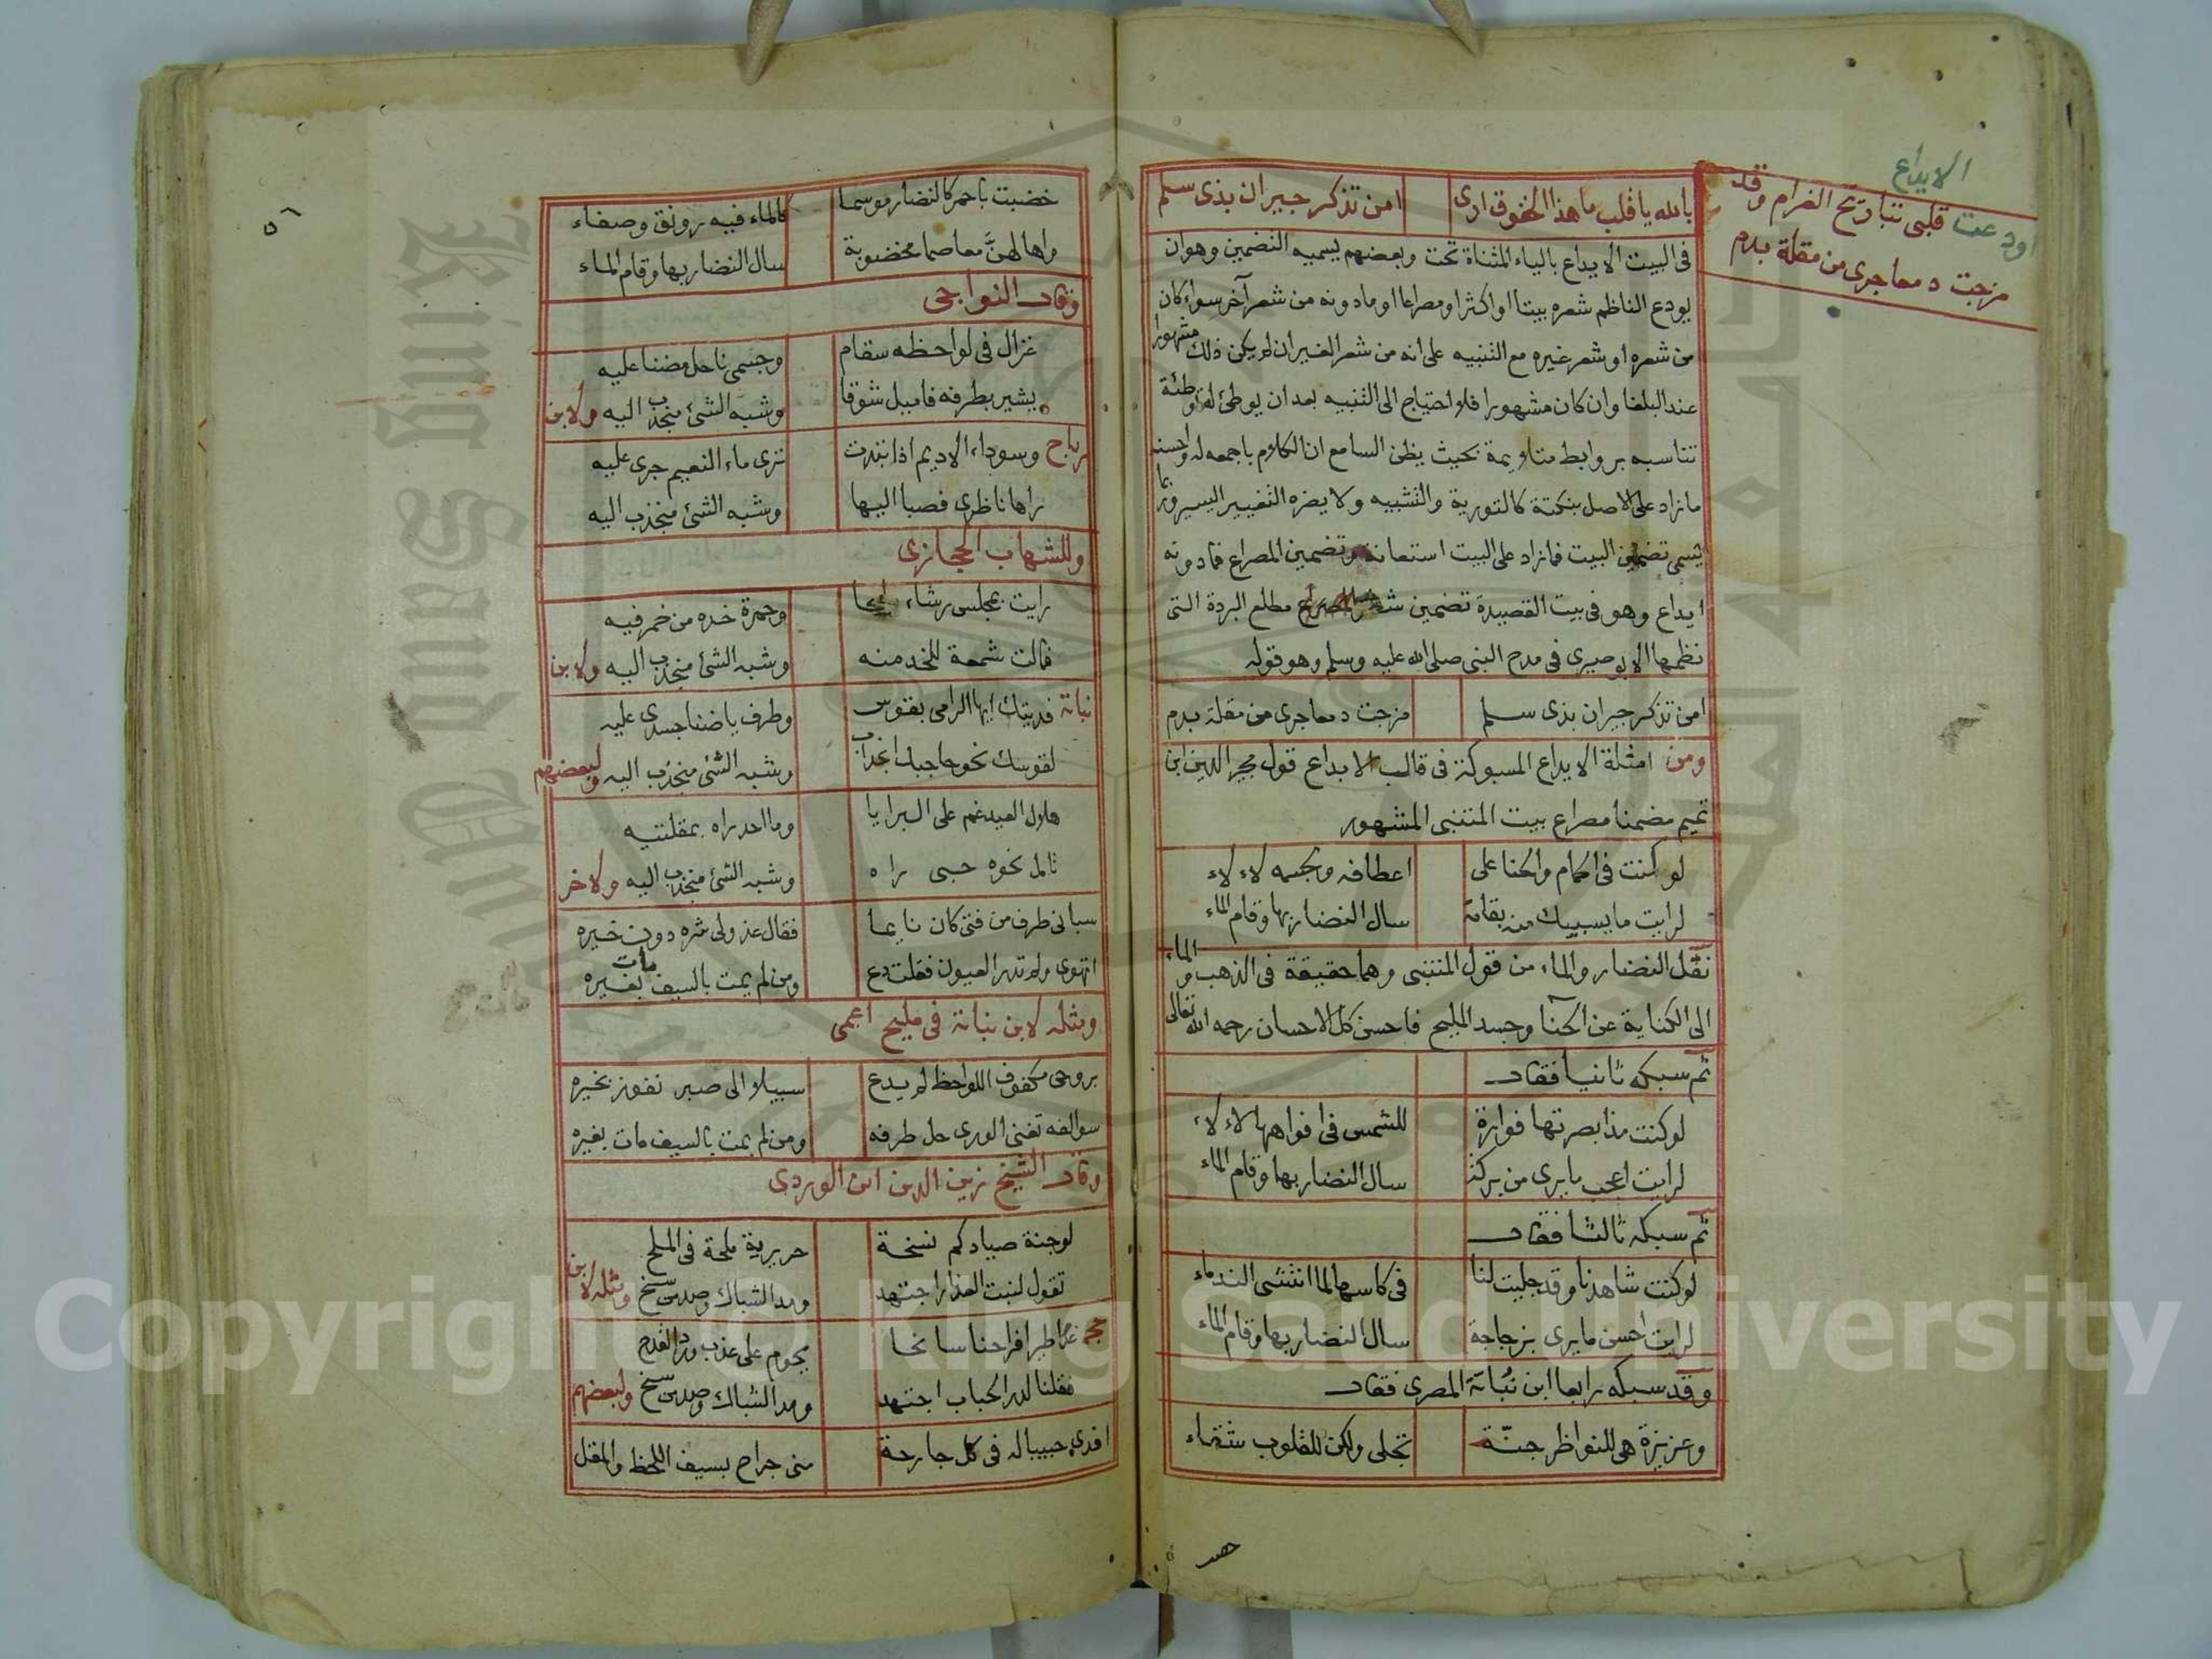 الايداع
اودعت قلبى تباريح الغرام وقد
مزجت دمعا جرى من مقلة بدم
بالله يا قلب ما هذا الخفوق ارى امن تذكر جيران بذى سلم
فى البيت الايداع بالياء المثناة تحت وبعضهم يسميه التضمين وهو ان
يودع الناظم شعره بيتا او اكثر او مصراعا او ما دونه من شعر آخر سواء كان
من شعره او شعر غيره مع التنبيه على انه من شعر الغير ان لم يكن ذلك مشهورا
عند البلغا وان كان مشهورا فلا احتياج الى التنبيه بعد ان يوطئ له توطئة
تناسبه بروابط متلايمة بحيث يظن السامع ان الكلام باجمعه له واحسنه
ما زاد على الاصل بنكتة كالتورية والتشبيه ولا يضره التغيير اليسير وربما
يسمى تضمين البيت فما زاد على البيت استعانة وتضمين المصراع فما دونه
ايداع وهو فى بيت القصيدة تضمين مطلع البردة التى
نظمها الابوصيرى فى مدح النبى صلى الله عليه وسلم وهو قوله
امن تذكر جيران بذى سلم مزجت دمعا جرى من مقلة بدم
ومن امثلة الايداع المسبوكة فى قالب الابداع قول مجير الدين ابن
تميم مضمنا مصراع بيت المتنبى المشهور
لو كنت فى الحمام والحنا على اعطافه وبجسمه لاءلاء
لرايت ما يسبيك منه بقامة سال النضار بها وقام الماء
نقل النضار والماء من قول المتنبى وهما حقيقة فى الذهب والماء
الى الكناية عن الحنا وجسد المليح فاحسن كل الاحسان رحمه الله تعالى
ثم سبكه ثانيا فقال
لو كنت مذ ابصرتها فوارة للشمس فى افواهها لاءلاء
لرايت اعجب ما يرى من بركة سال النضار بها وقام الماء
ثم سبكه ثالثا فقال
لو كنت شاهدنا وقد جليت لنا فى كاسها لما انتشى الندماء
لرايت احسن ما يرى بزجاجة سال النضار بها وقام الماء
وقد سبكه رابعا ابن نباتة المصرى فقال
وعزيزة هى للنواظر جنة تجلى ولكن للقلوب شقاء
٥٦
خضبت باحمر كالنضار موسما كالماء فيه رونق وصفاء
واها لهن معاصما مخضوبة سال النضار بها وقام الماء
وقال النواجى
غزال فى لواحظه سقام وجسمى ناحل مضنا عليه
يشير بطرفه فاميل شوقا وشبه الشئ منجذب اليه ولابن
رباح وسوداء الاديم اذا تبدت ترى ماء النعيم جرى عليه
راها ناظرى فصبا اليها وشبه الشئ منجذب اليه
وللشهاب الحجازى
رايت بمجلس رشاء وحمرة خده من خمر فيه
فمالت شمعة للخد منه وشبه الشئ منجذب اليه ولابن
نباتة فديتك ايها الرامى بقوس وطرف يا ضنا جسدى عليه
لقوسك نحو حاجبك انجذاب وشبه الشئ منجذب اليه ولبعضهم
هلال العيد غم على البرايا وما احد راه بمقلتيه
تامل نحوه حبى راه وشبه الشئ منجذب اليه ولاخر
سبانى طرف من فتى كان نايما فقال عذولى شره دون خيره
اتهوى ولم تدر العيون فقلت دع ومن لم يمت بالسيف مات بغيره
ومثله لابن نباتة فى مليح اعمى
بروحى مكفوف اللواحظ لم يدع سبيلا الى صبر نفوز بخيره
سوالفه تغنى الورى حل طرفه ومن لم يمت بالسيف مات بغيره
وقال الشيخ زين الدين ابن الوردى
لوجنة صيادكم نسخة حريرية ملحة فى الملح
تقول لنبت العذار اجتهد ومد الشباك وصد من سنح ومثله لابن
طير افراحنا سانحا يحوم على عذب ورد القدح
فقلنا لدر الحباب اجتهد ومد الشباك وصد من سنح ولبعضهم
افدى حبيبا له فى كل جارحة منى جراح بسيف اللحظ والمقل
Copyright © King Saud University